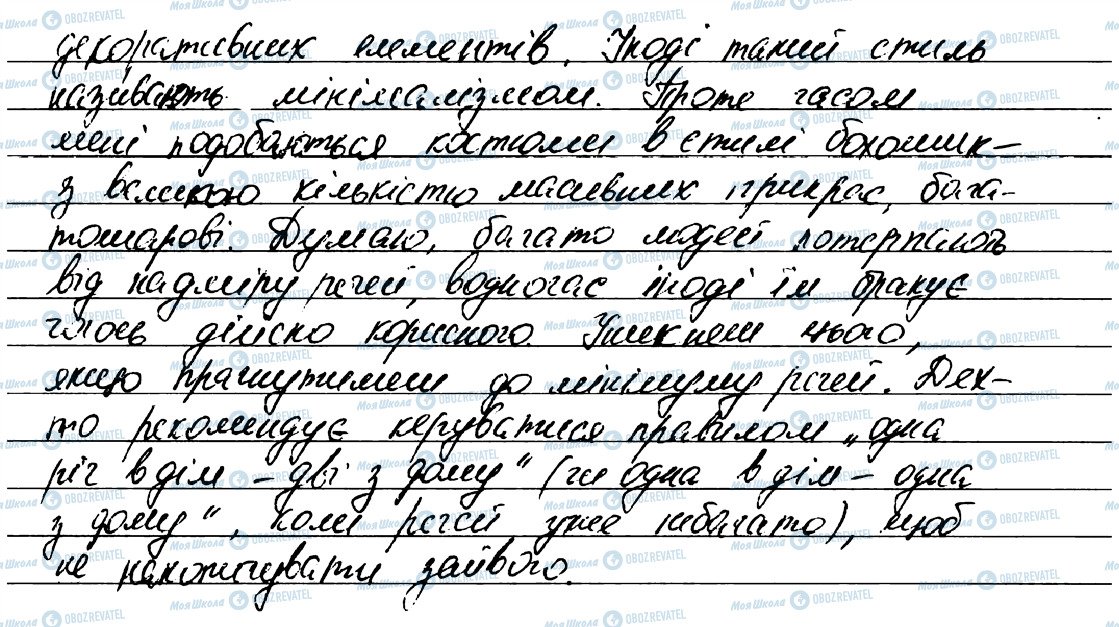 декоративних елементів. Іноді такий стиль
називають мінімалізмом. Проте часом
мені подобаються костюми в стилі бохошик –
з великою кількістю масивних прикрас, бага-
тошарові. Думаю, багато людей потерпають
від надміру речей, водночас іноді їм бракує
чогось дійсно корисного. Уникнеш цього,
якщо прагнутимеш до мінімуму речей. Дех-
то рекомендує керуватися правилом „одна
річ в дім – дві з дому“ (чи одна в дім – одна
з дому“, коли речей уже небагато), щоб
не накопичувати зайвого.